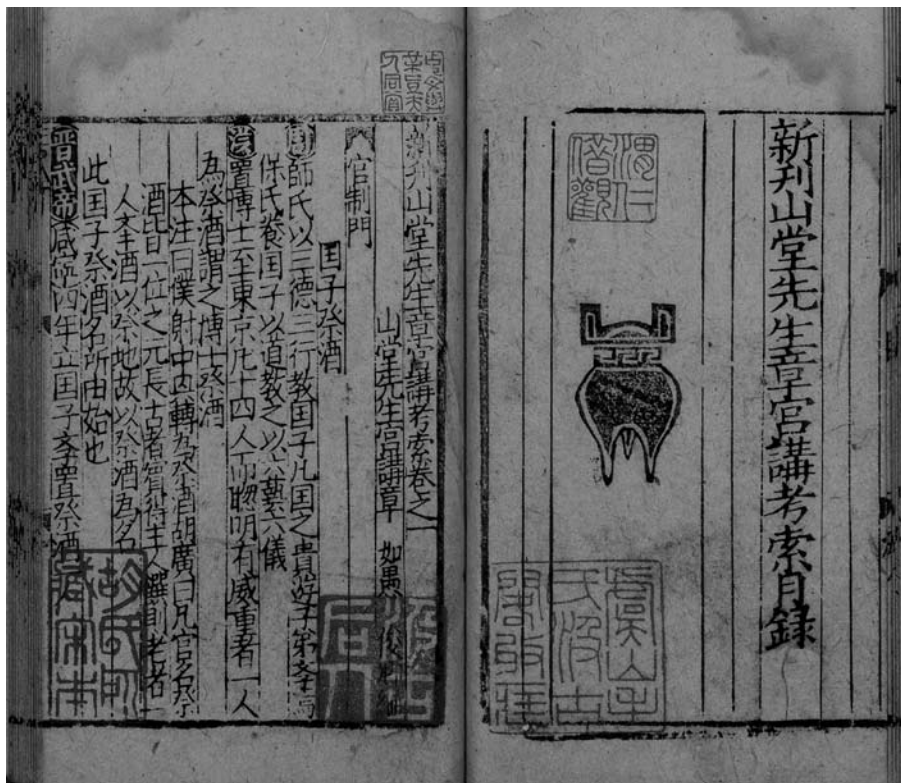 新刋山堂先生章宮講考索目錄
新刋山堂先生章宮講考索卷之一
山堂先生宮講章 如愚 俊卿 編
官制門
国子祭酒
周師氏以三德三行教国子凡国之貴游子弟斈焉
保氏養国子以道教之以六藝六儀
漢置博士至東京凢十四人而聦明有威重者一人
為祭酒謂之博士祭酒
本注曰僕射中内轉為祭酒胡廣曰凡官名祭
酒皆一位之元長古者賔得主人饌則老者一
人举酒以祭地故以祭酒為名
此国子祭酒名所由始也
晋武帝咸寧四年立国子斈置祭酒